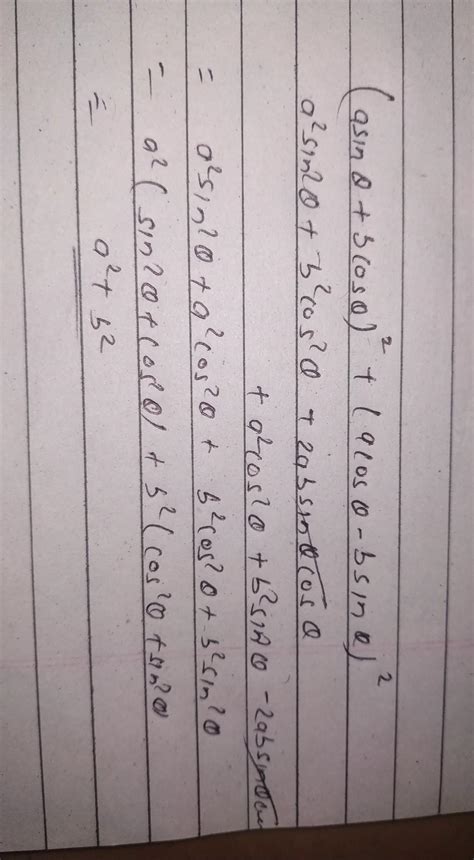 (asinθ + bcosθ)² + (acosθ - bsinθ)²
a²sin²θ + b²cos²θ + 2absinθcosθ
+ a²cos²θ + b²sin²θ - 2absinθcosθ
= a²sin²θ + a²cos²θ + b²cos²θ + b²sin²θ
= a²(sin²θ + cos²θ) + b²(cos²θ + sin²θ
= a² + b²